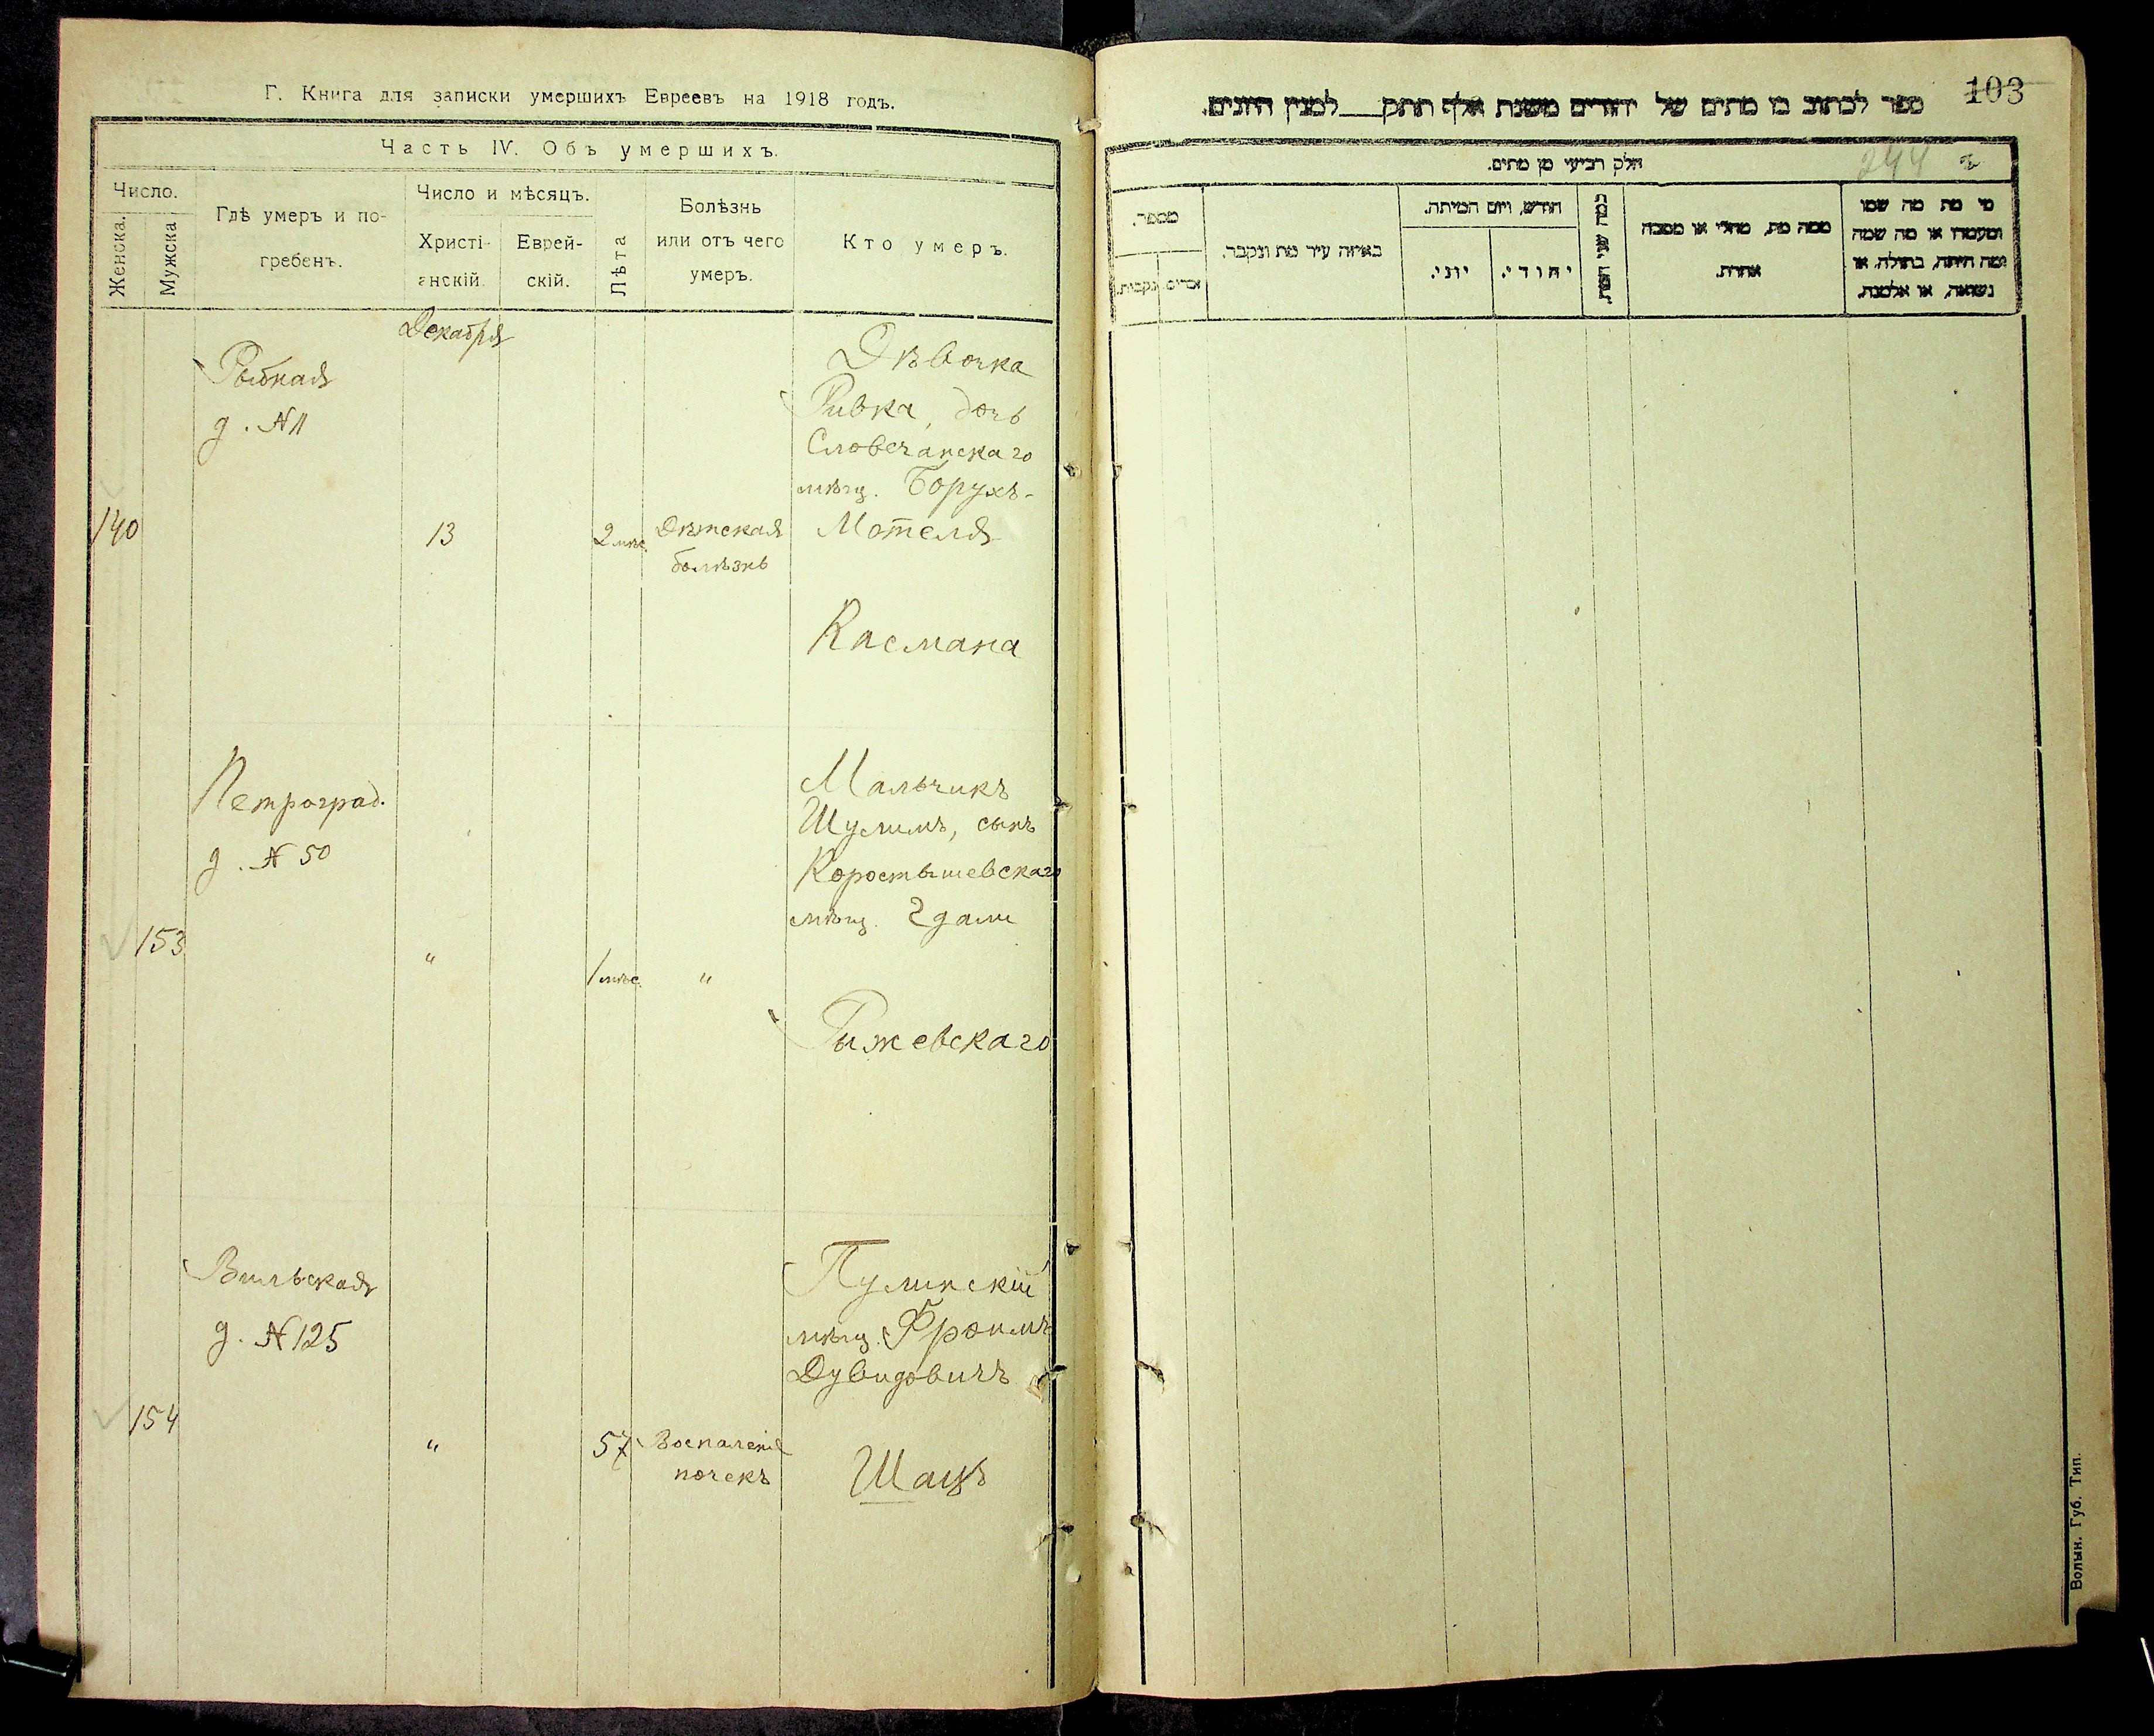 Г. Книга для записки умершихъ Евреевъ на 1918 годъ.
Часть IV. Объ умершихъ.
Число.
Женска.
Мужска
Гдѣ умеръ и по-
гребенъ.
Число и мѣсяцъ.
Христі-
анскій.
Еврей-
скій.
Лѣта
Болѣзнь
или отъ чего
умеръ.
Кто умеръ.
Декабря
Рыбная
д. № 11
140
13
2 мѣс.
Дѣтская
болѣзнь
Дѣвочка
Ривка, дочь
Словечанскаго
мѣщ. Борухъ-
Мотеля
Касмана
Петроград.
д. № 50
153
"
1 мѣс.
"
Мальчикъ
Шулимъ, сынъ
Коростышевскаго
мѣщ. Гдали
Рыжевскаго
Вильская
д. № 125
154
"
57
Воспаленіе
почекъ
Пулинскій
мѣщ. Фроимъ
Дувидовичъ
Шацъ
103
ספר לכתוב בו מתים של יהודים משנת אלף תתק לממנין היונים.
244
חלק רביעי מן מתים.
מספר.
זכרים.
נקבות.
באיזה עיר מת ונקבר.
חודש, ויום המיתה.
יוני.
יהודי.
כמה שני המת.
ממה מת, מחלי או מסבה
אחרת.
מי מת מה שמו
ומעמדו או מה שמה
ומה היתה, בתולה, או
נשואה, או אלמנה.
Волын. Губ. Тип.